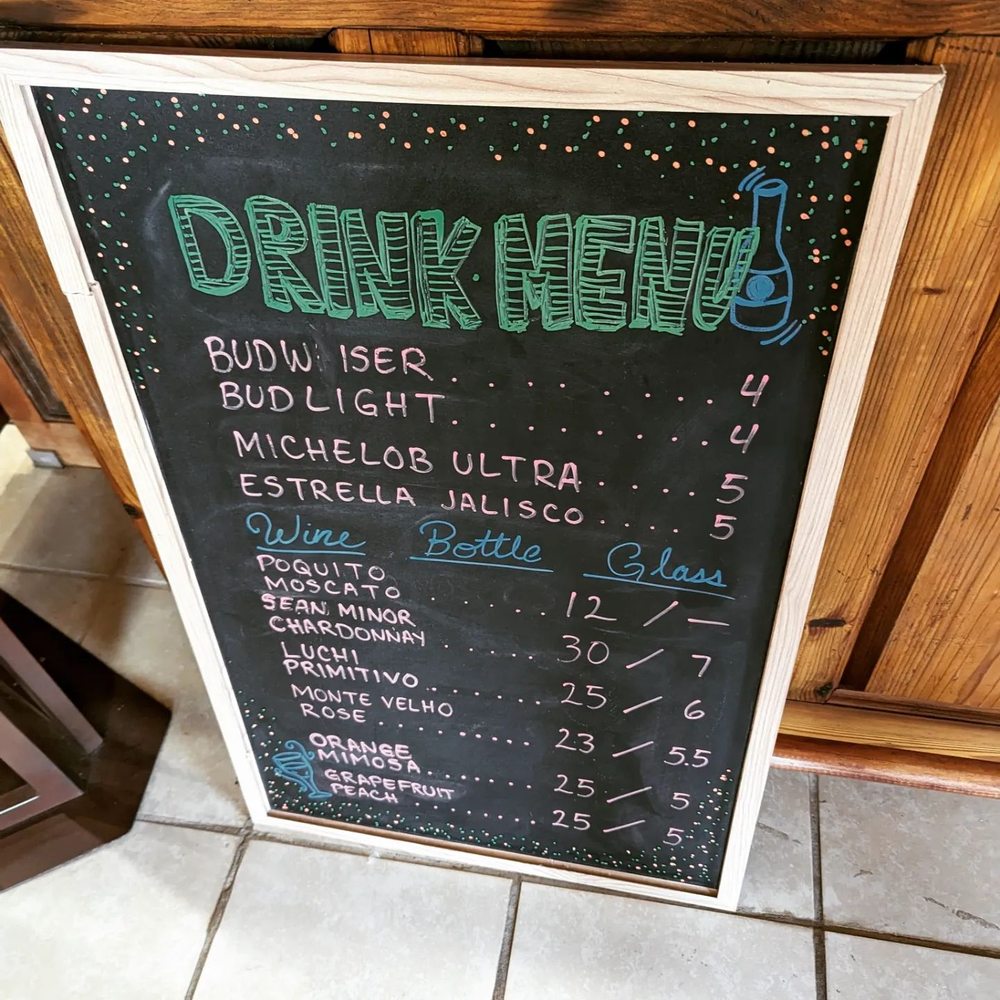 DRINK MENU
BUDW ISER . . . . . . . . 4
BUD LIGHT . . . . . . . . 4
MICHELOB ULTRA . . . . . 5
ESTRELLA JALISCO . . . . 5
Wine Bottle Glass
POQUITO
MOSCATO . . . . . . . 12 / —
SEAN MINOR
CHARDONNAY . . . . . 30 / 7
LUCHI
PRIMITIVO . . . . . . 25 / 6
MONTE VELHO
ROSE . . . . . . . . 23 / 5.5
ORANGE
MIMOSA . . . . . . 25 / 5
GRAPEFRUIT
PEACH . . . . . . 25 / 5